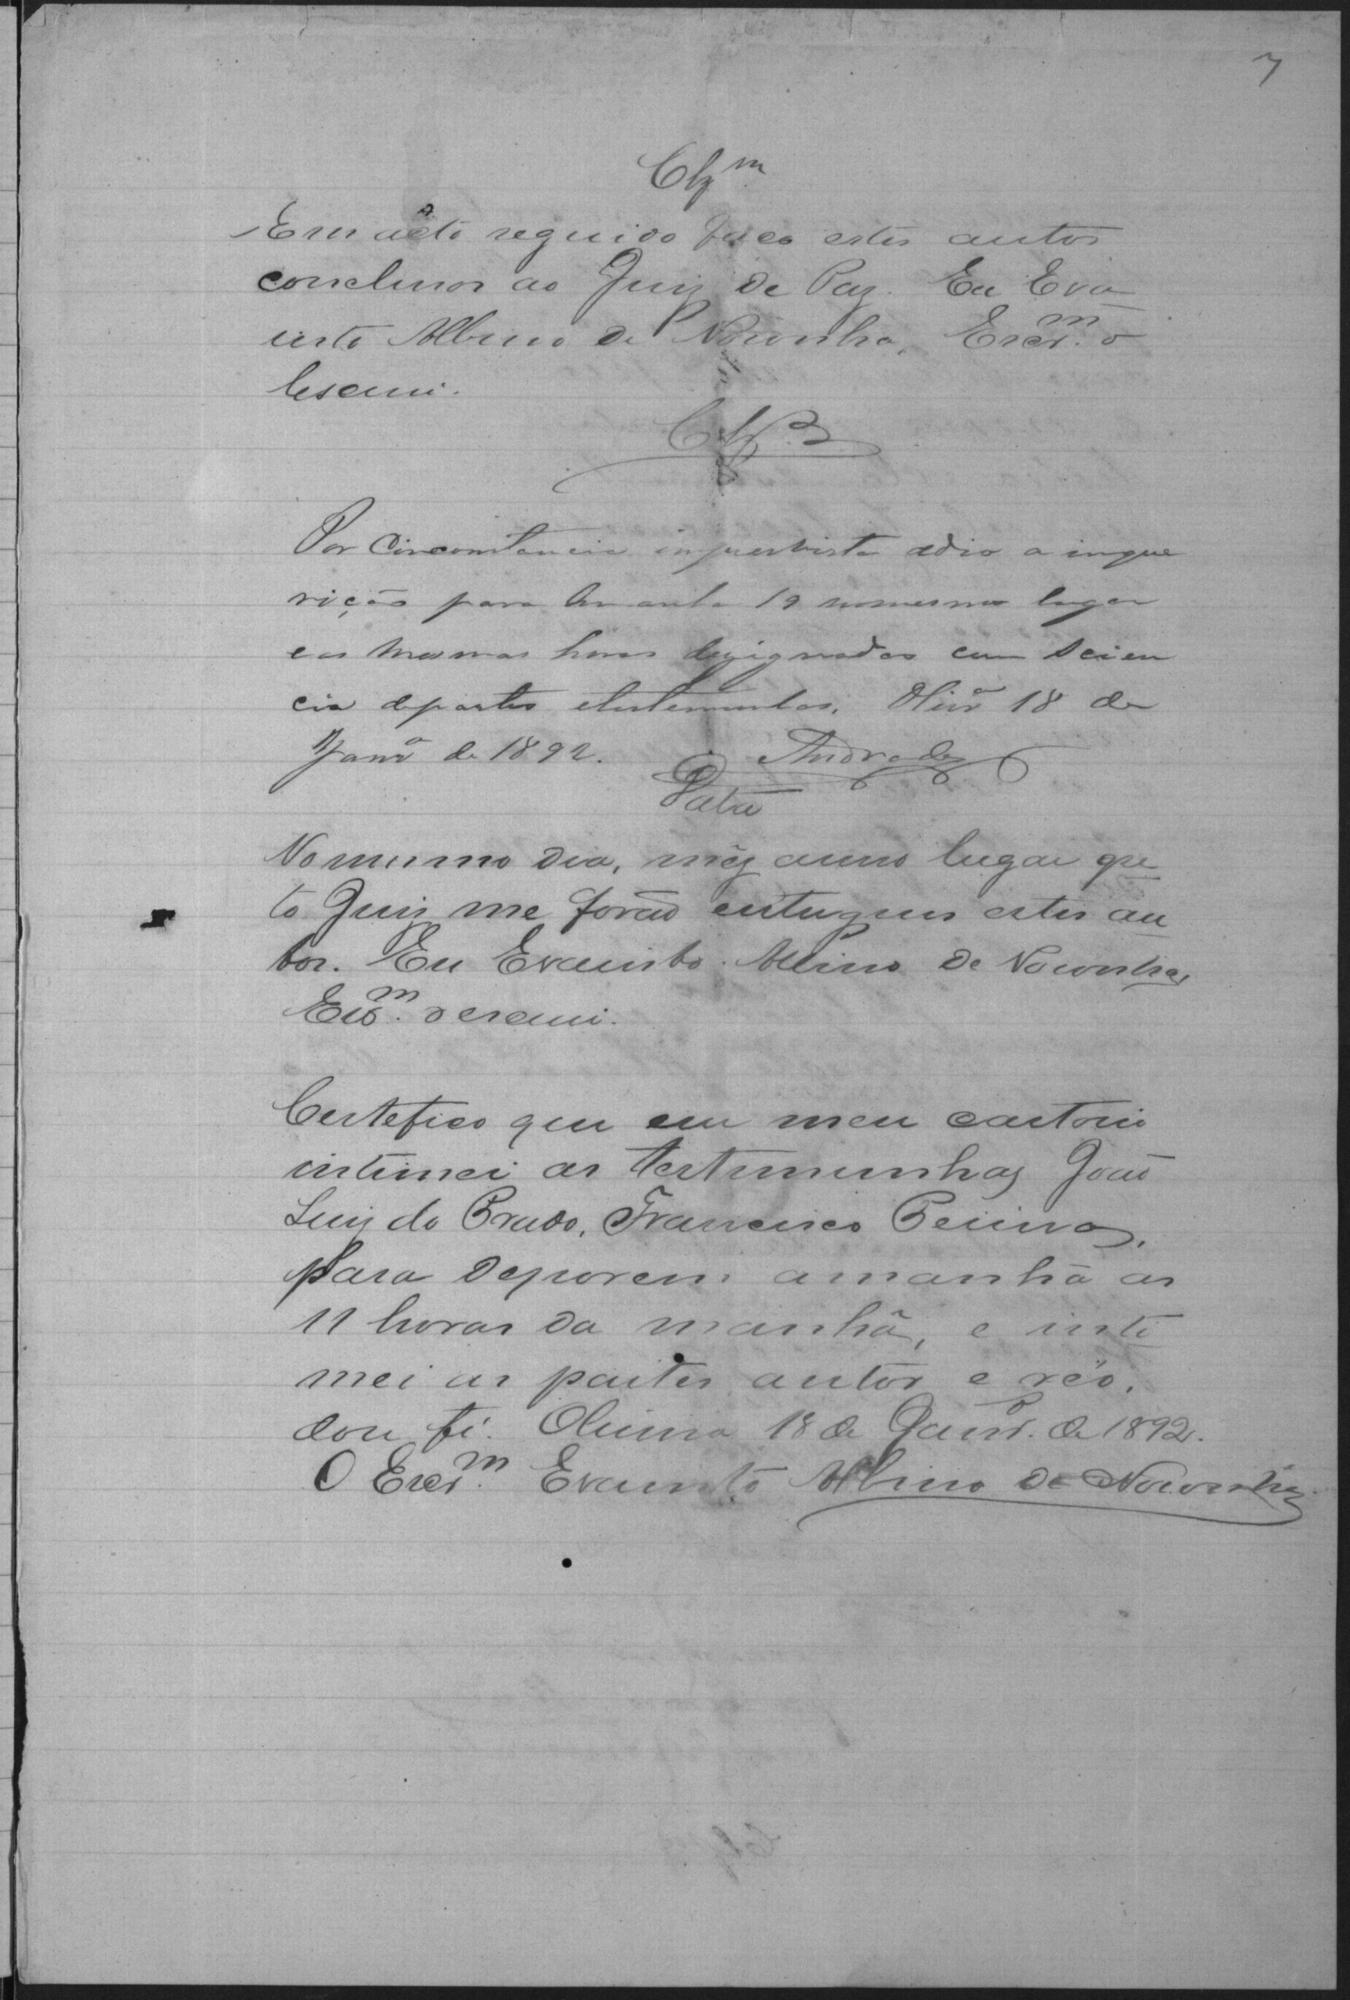 7
Clz.m
Em acto seguido faço estes autos
conclusos ao Juiz de Paz. Eu Eva
risto Albino de Noronha, Escr.m o
escrevi.
Clz.
Por circonstancia imprevista adio a inque
rição para amanhã 19 no mesmo lugar
e as mesmas horas designadas com scien
cia de partes e testemunhas. 18 de
Janr.o de 1892. Andrade
Data
No mesmo dia, mez anno lugar
to Juiz me forão entregues estes au
tos. Eu Evaristo Albino de Noronha,
Escr.m o escrevi.
Certefico que em meu cartorio
intimei as testemunhas João
Luiz do Prado, Francisco
para deporem amanhã as
11 horas da manhã, e inti
mei as partes autor e réo,
dou fé. 18 de Janr.o de 1892.
O Escr.m Evaristo Albino de Noronha